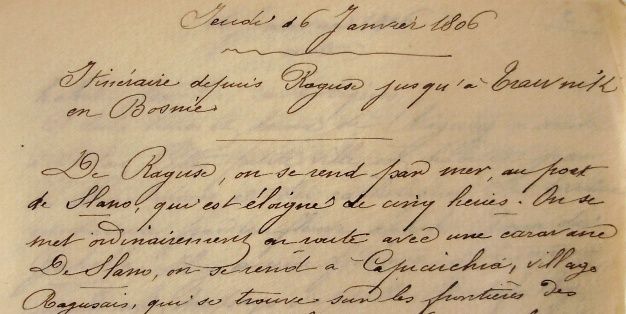 Jeudi 16 Janvier 1806
Itinéraire depuis Raguse jusqu'à Trawnik
en Bosnie
De Raguse, on se rend par mer, au port
de Slano, qui est éloigné de cinq heures. On se
met ordinairement en route avec une caravane
De Slano, on se rend à village
Ragusais, qui se trouve sur les frontières des